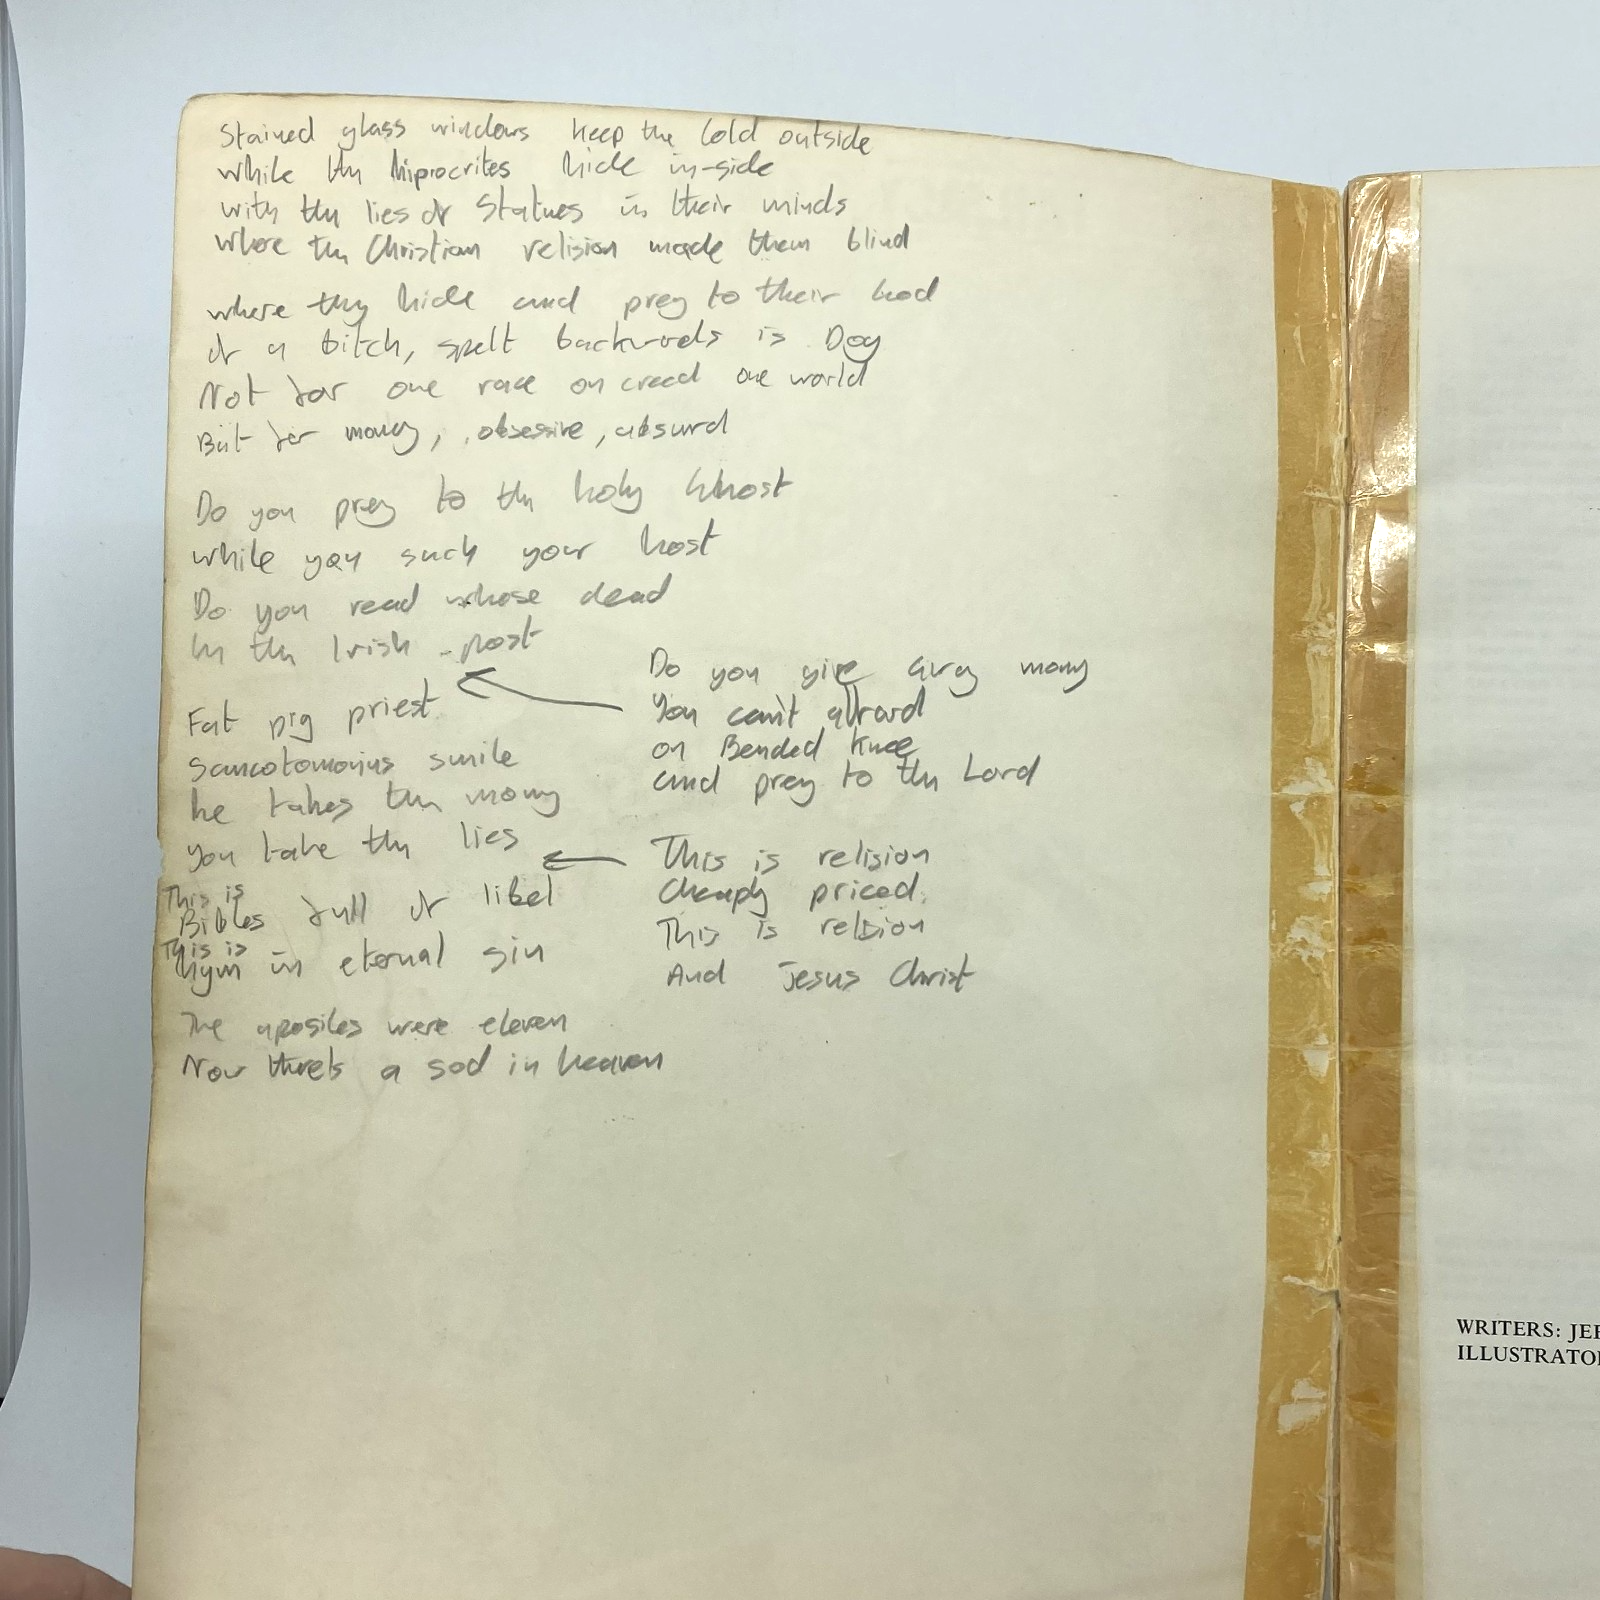 Stained glass windows keep the Cold outside
while the hipocrites hide in-side
with the lies of Statues in their minds
where the Christian religion made them blind
where they hide and prey to their God
of a bitch, spelt backwords is Dog
Not for one race on creed one world
But for money, obsessive, absurd
Do you prey to the holy Ghost
while you suck your host
Do you read whose dead
In the Irish post
Do you give away mony
You can't afford
on Bended Knee
and prey to the Lord
Fat pig priest
sancotomonius smile
he takes the mony
you take the lies
This is religion
Cheaply priced.
This is religion
And Jesus Christ
This is
Bibles full of libel
This is
hym in eternal sin
The aposiles were eleven
Now there's a sod in heaven
WRITERS:
ILLUSTRATO